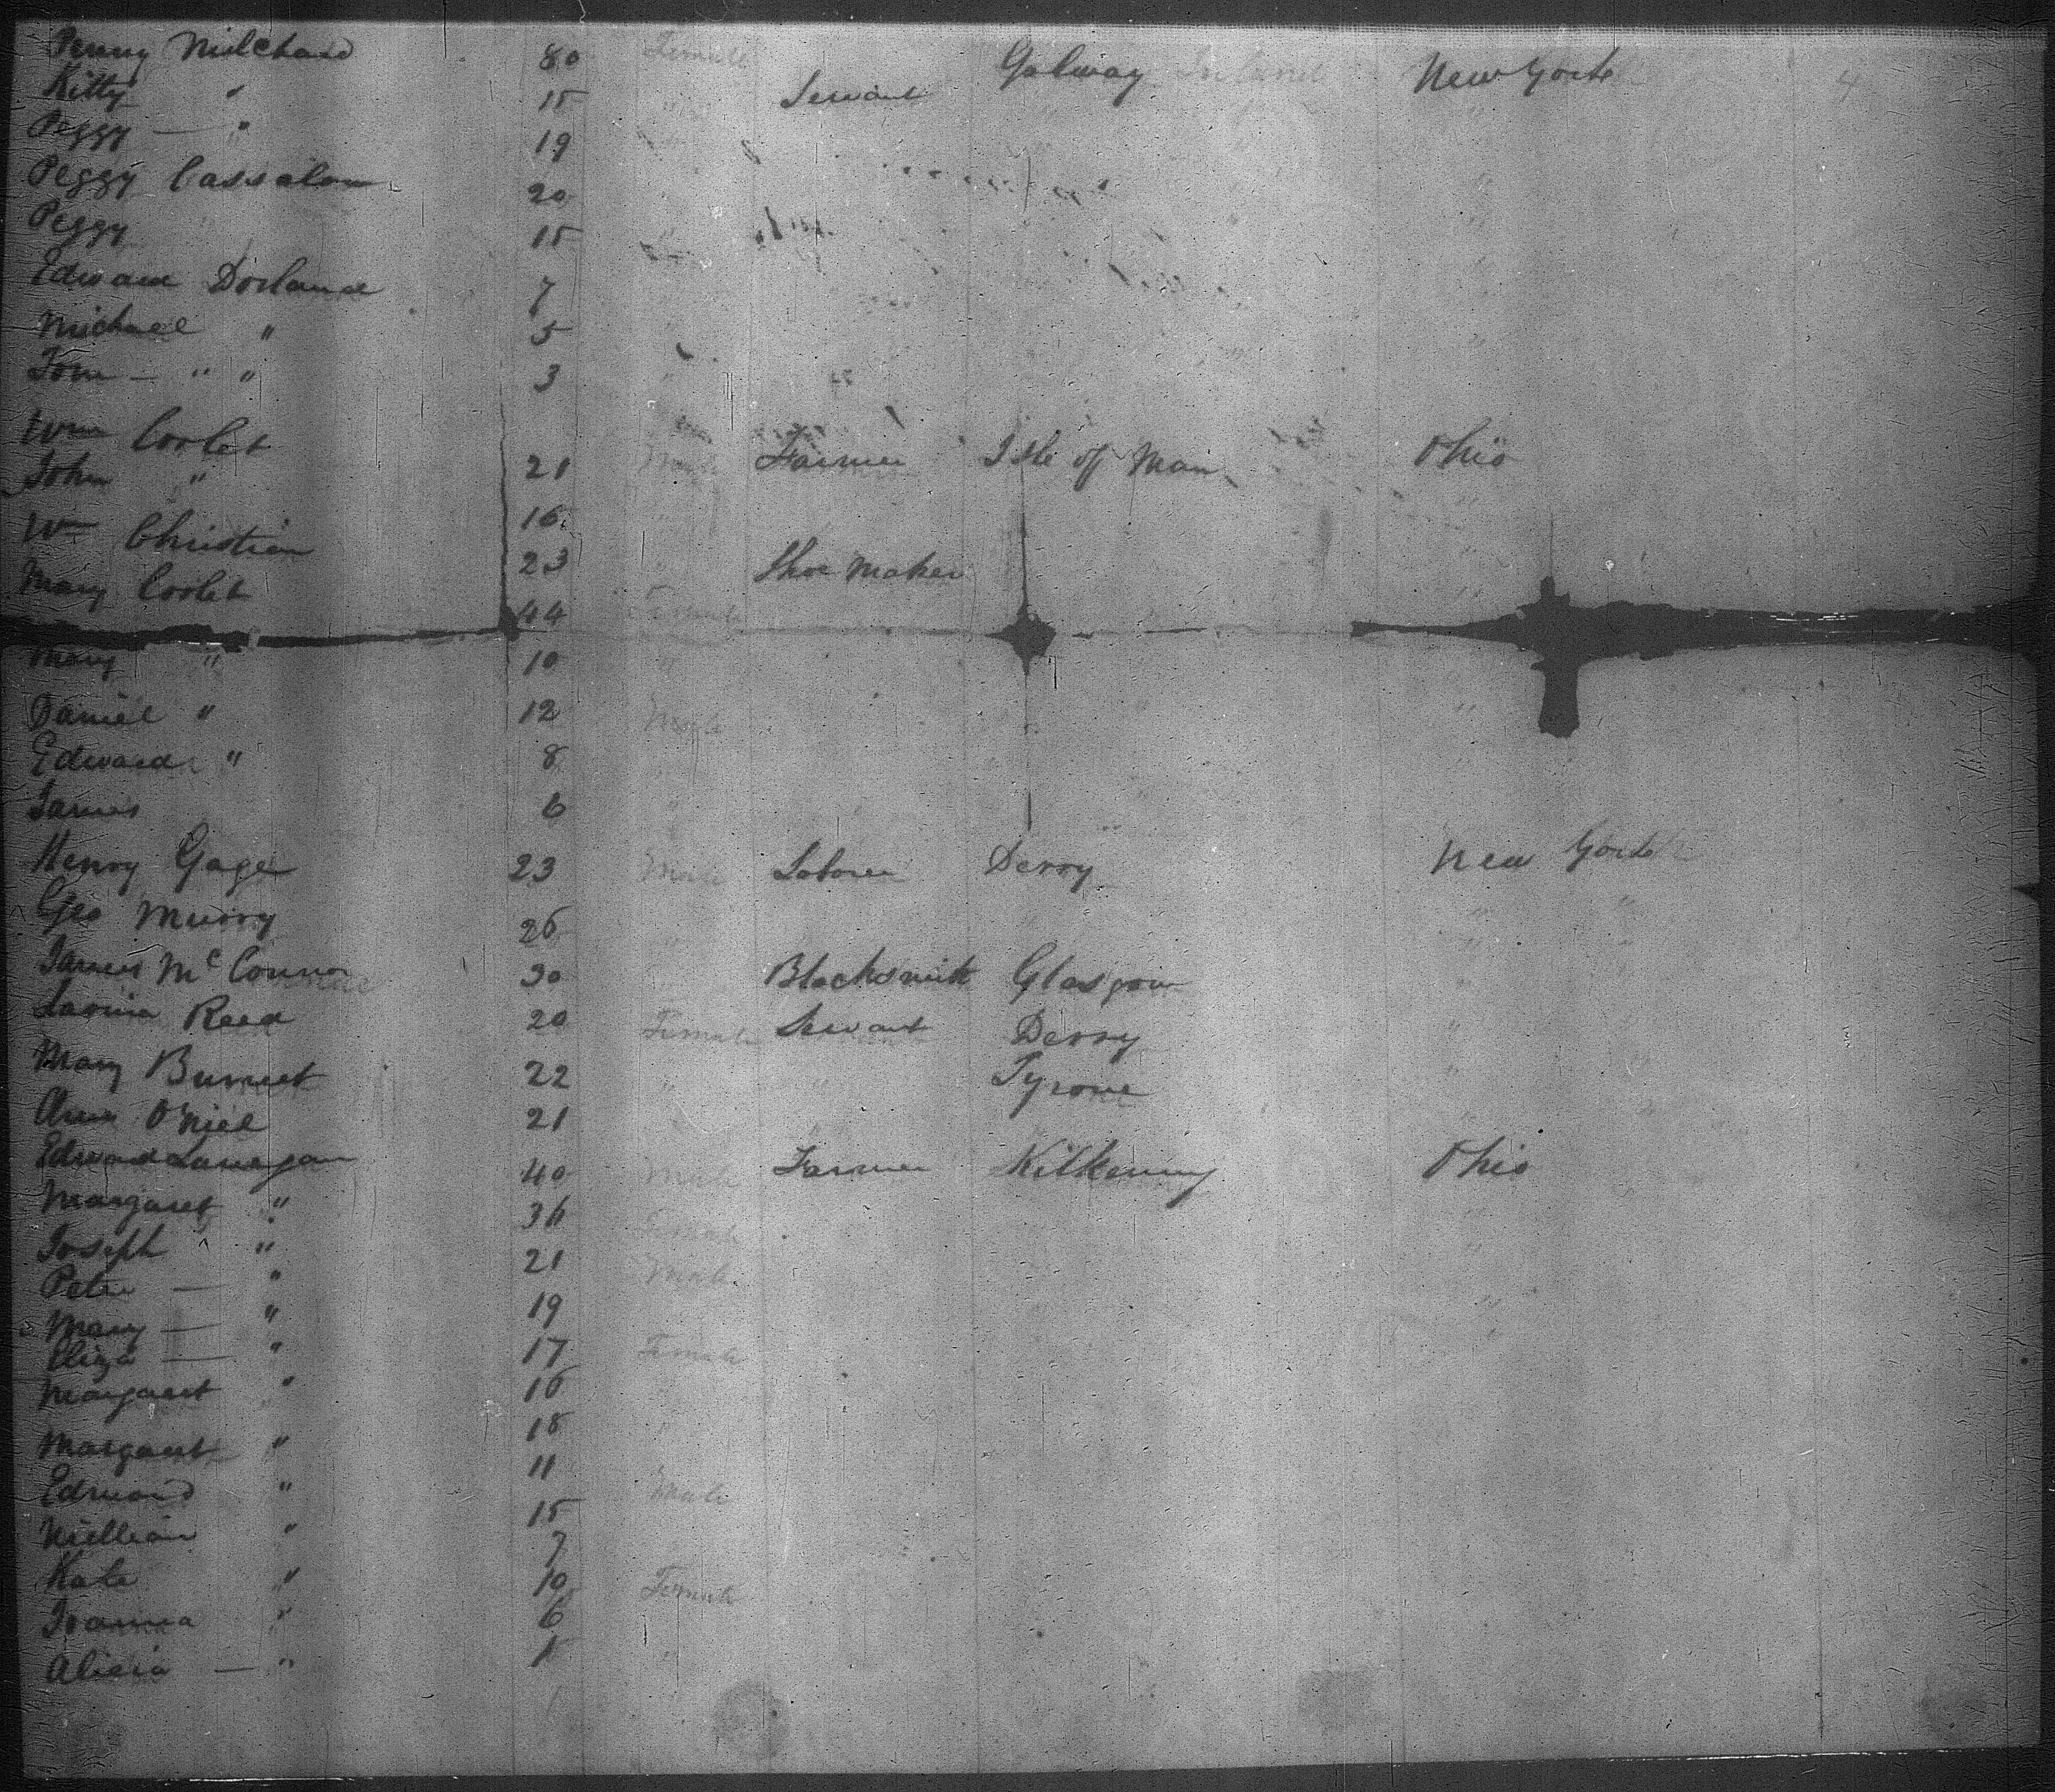 Penny Milchard 80 Female Galway Ireland New York 4
Kitty " 15 " Servant
Peggy — " 19
Peggy Cassalow 20
Peggy 15
Edward Dorland 7
Michael " 5
Tom — " " 3
Wm Corlet 21 Male Farmer Isle of Man Ohio
John " 16
Wm Christian 23 Shoe Maker
Mary Corlet 44 Female
Mary " 10 "
Daniel " 12 Male
Edward " 8
James 6
Henry Gage 23 Male Laborer Derry New York
Geo Murry 26
James Mc Connor 30 Blacksmith Glasgow
Lavina Reed 20 Female Servant Derry
Mary Burnet 22 " Tyrone
Ann O'Niel 21
Edward Lanegan 40 Male Farmer Kilkenny Ohio
Margaret " 36 Female
Joseph " 21 Male
Peter — " 19
Mary — " 17 Female
Eliza — " 16
Margaret " 18
Margaret " 11
Edmond " 15 Male
William " 7
Kate " 10 Female
Joanna " 6
Alicia — " 1